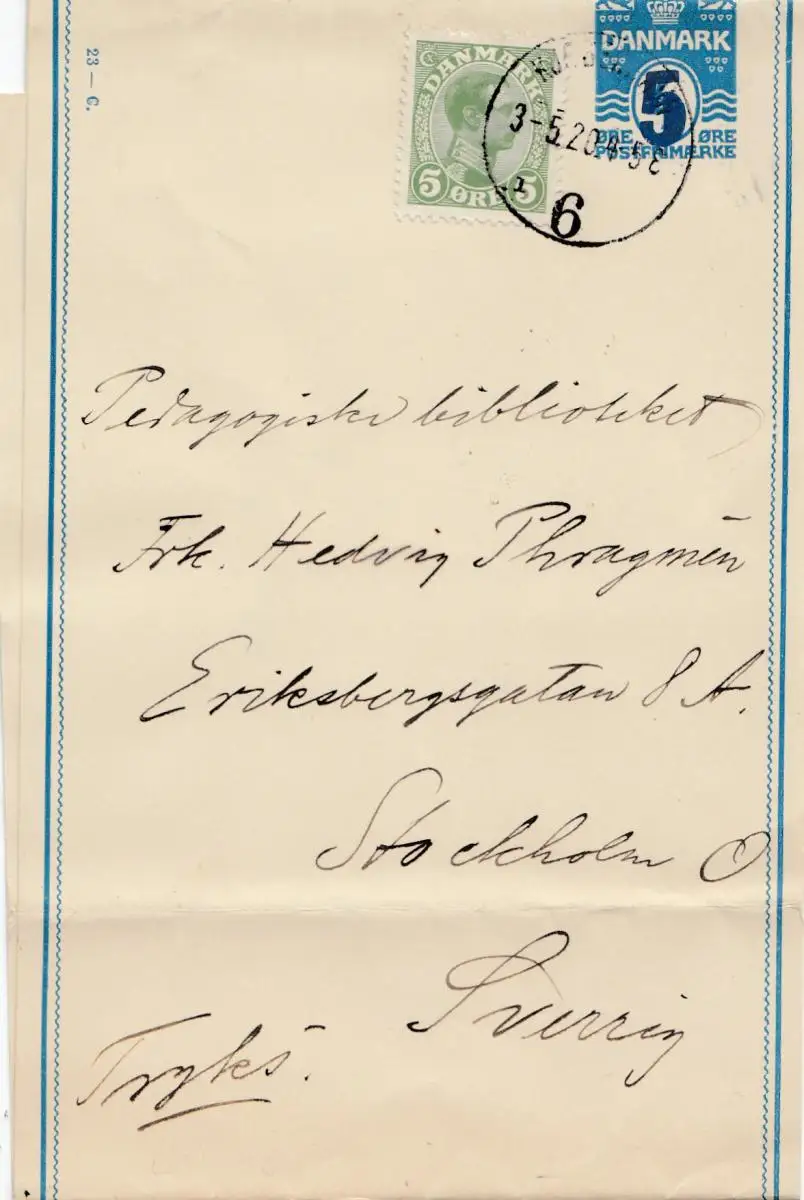 23 — C.
DANMARK
5 ØRE 5
DANMARK
5
ØRE ØRE
POSTFRIMÆRKE
3-5.20.4-5 E
1
6
Pedagogiska biblioteket
Frk. Hedvig Phragmén
Eriksbergsgatan 8 A.
Stockholm Ö
Sverrig
Tryks.